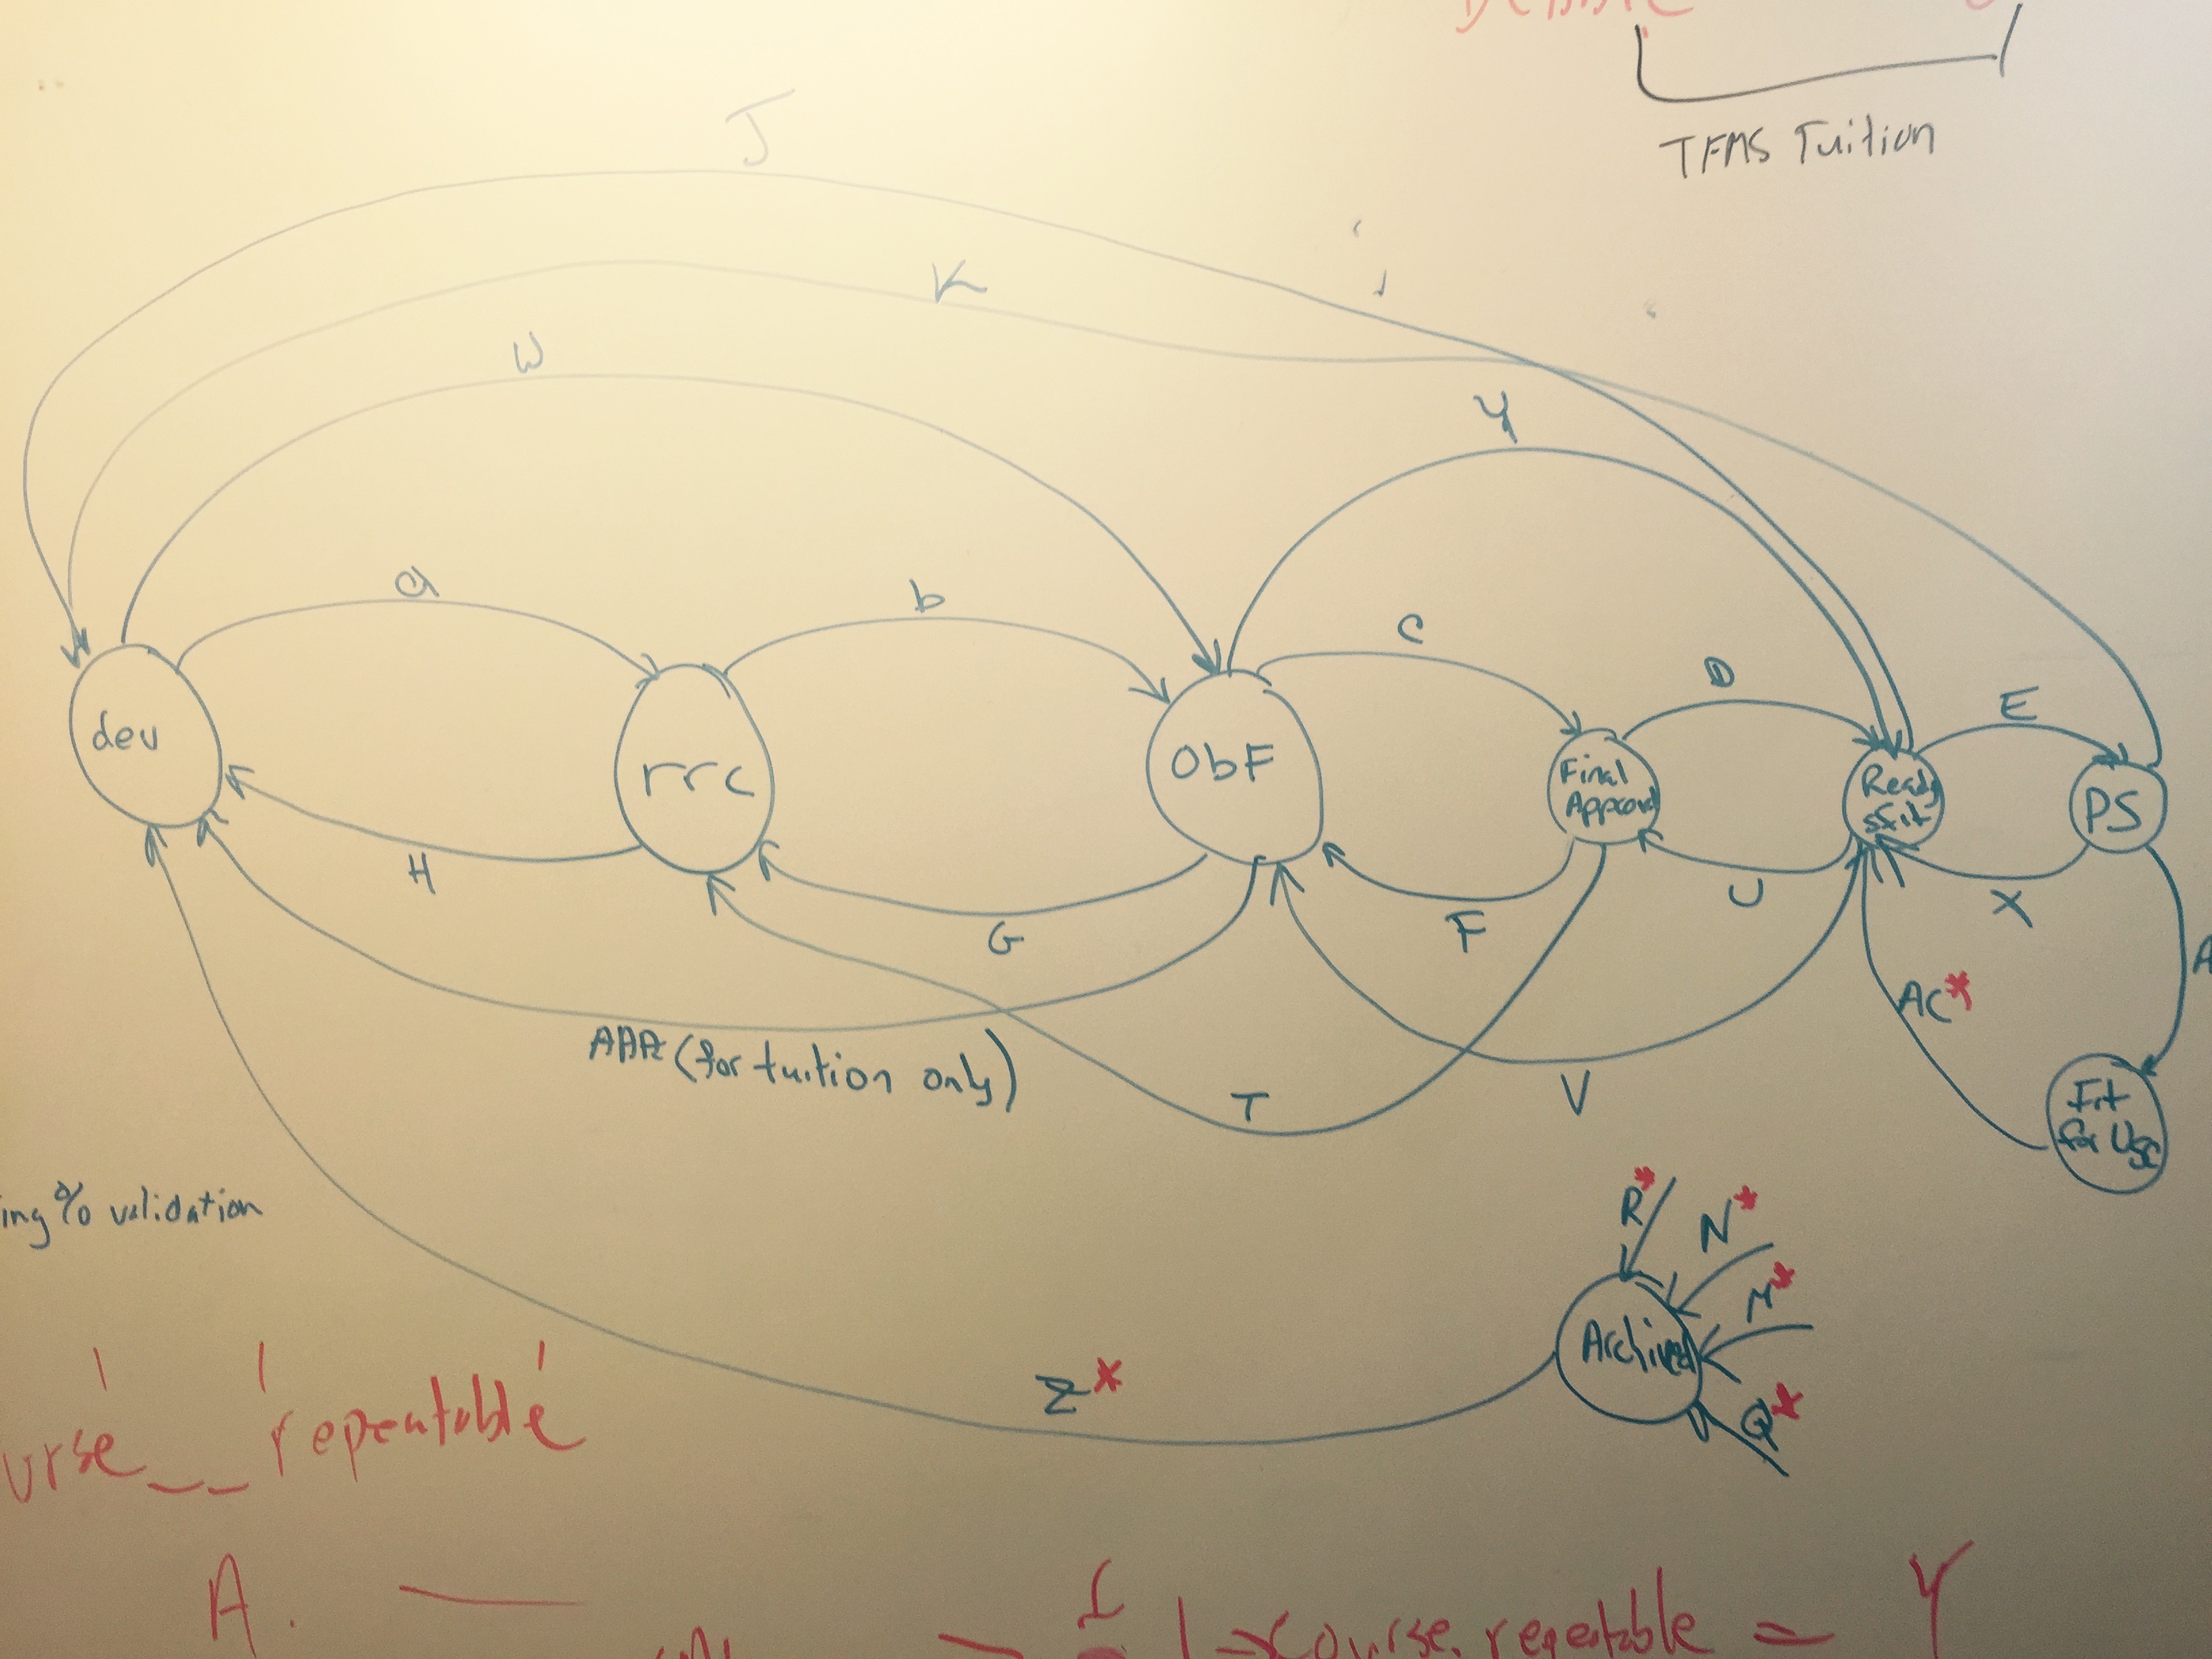 TFMS Tuition
J
K
W
Y
a
b
C
D
E
dev
rrc
ObF
Final
Ready
PS
H
G
F
U
X
A
AC*
AAA (for tuition only)
T
V
Fit
for Use
ing % validation
R*
N*
M*
Archived
Q*
Z*
urse__repeatable
A.
course.repeatable = Y